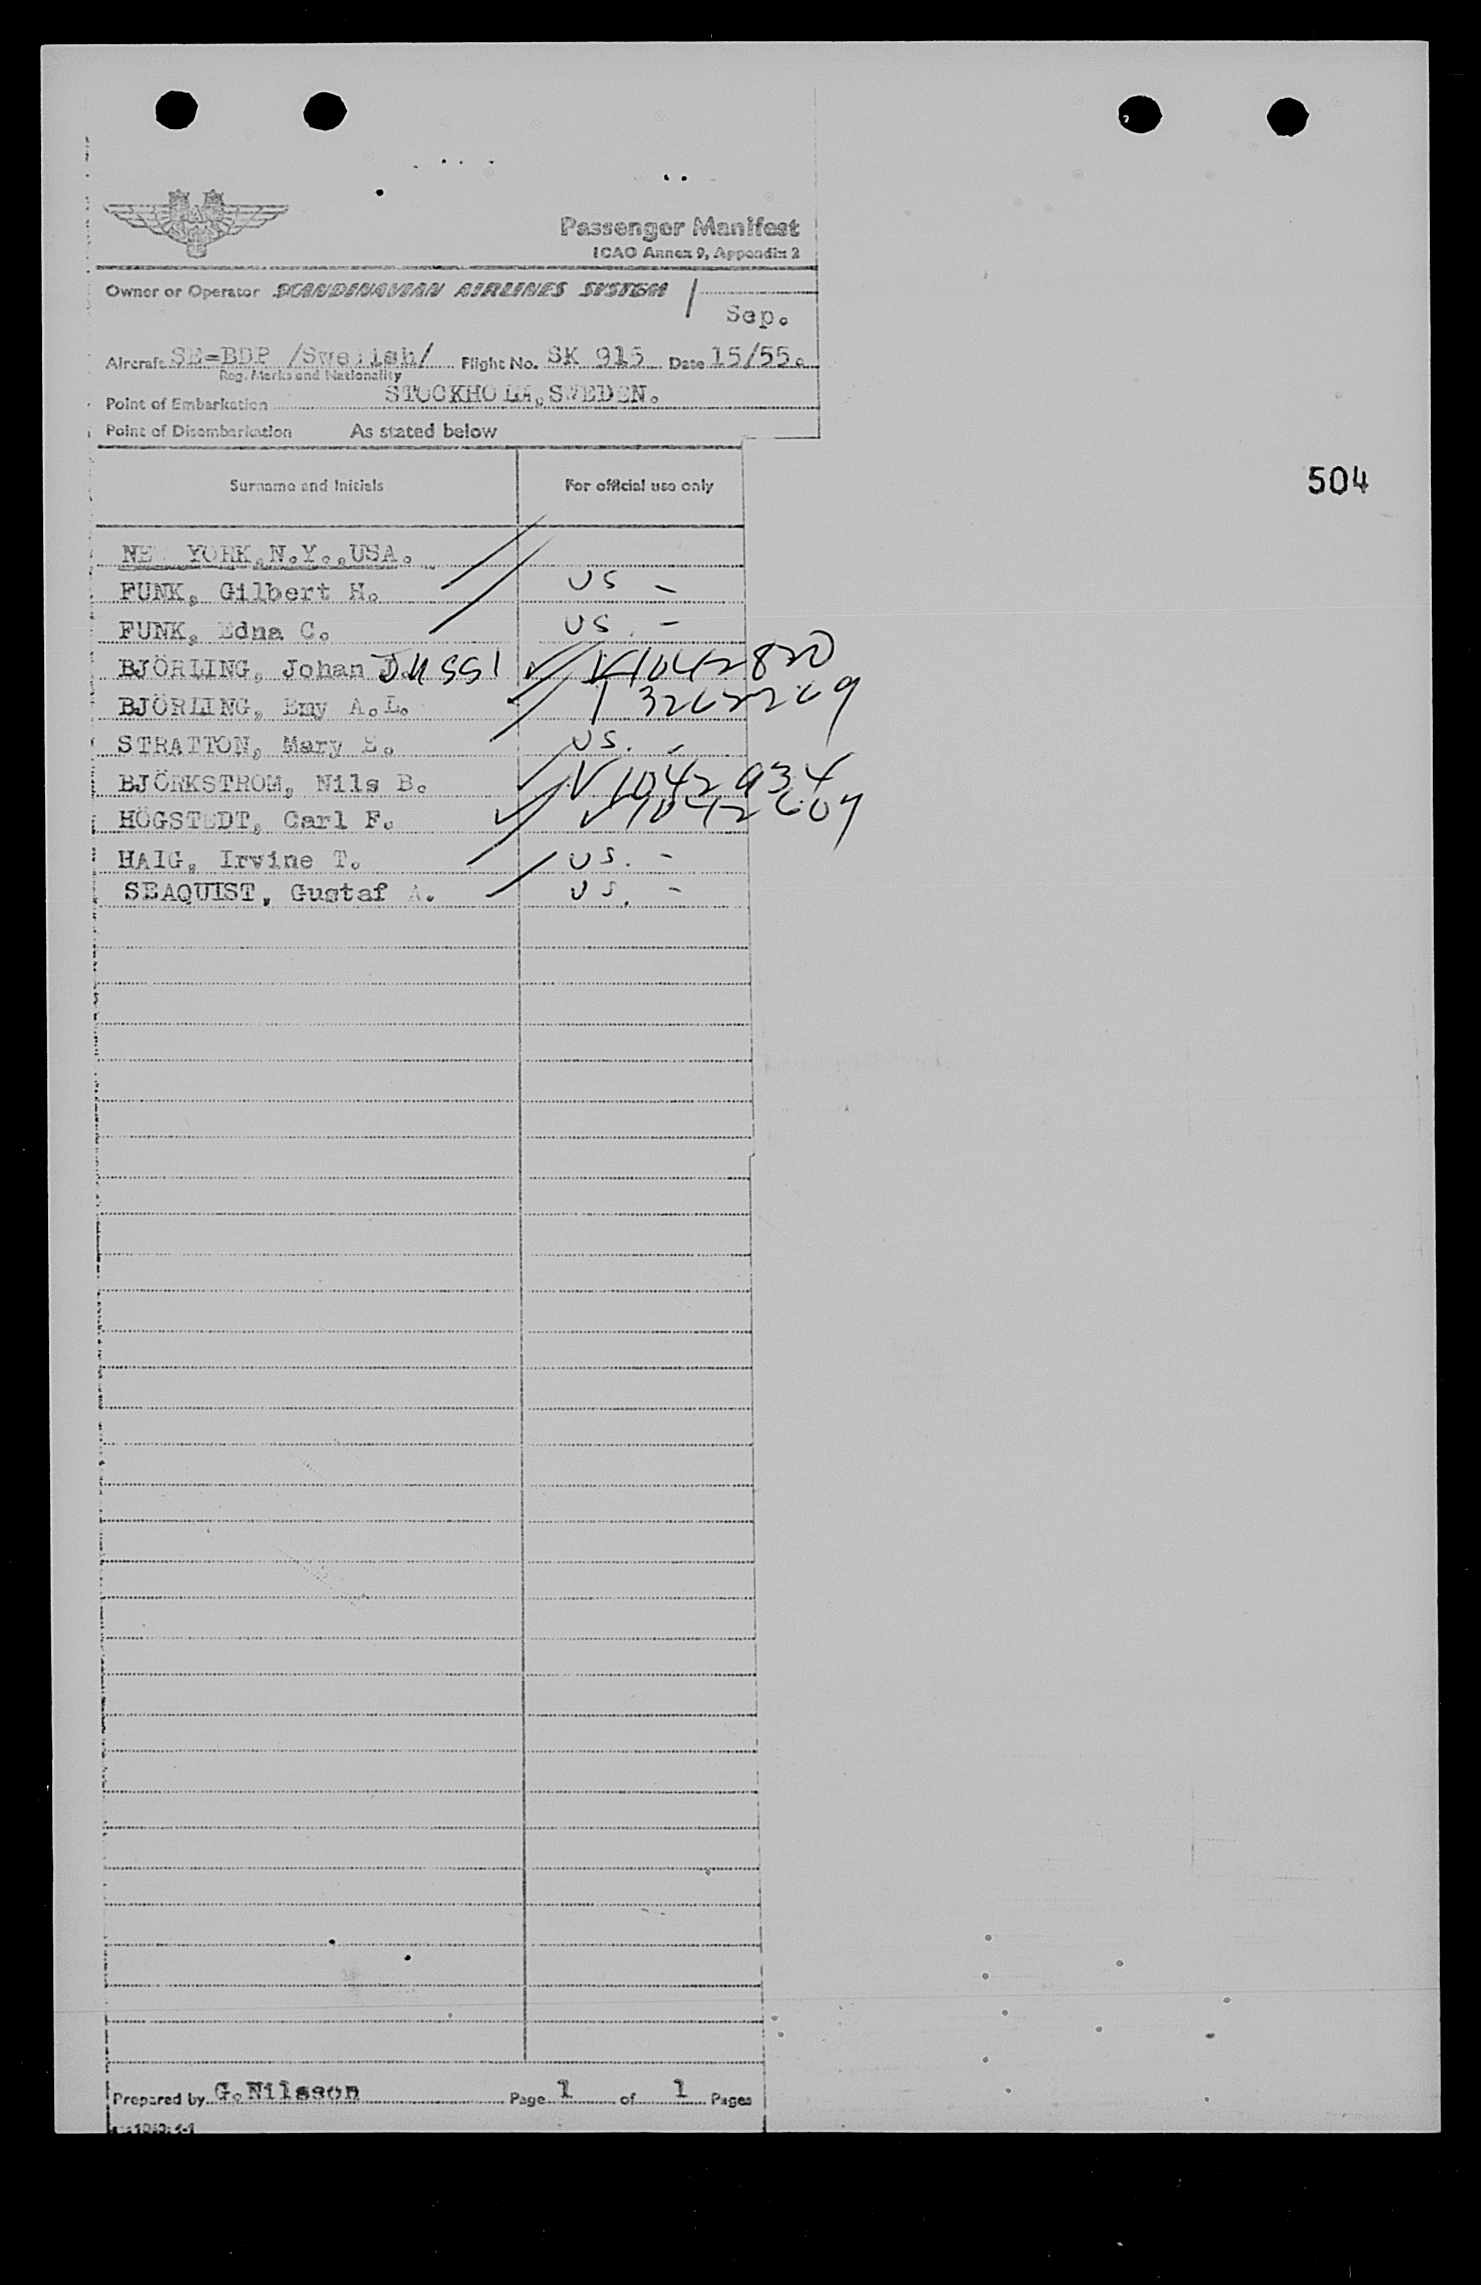 Passenger Manifest
ICAO Annex 9, Appendix 2
Owner or Operator SCANDINAVIAN AIRLINES SYSTEM /
Sep.
Aircraft SE-BDP /Swedish/ Flight No. SK 915 Date 15/55.
Reg. Marks and Nationality
Point of Embarkation STOCKHOLM,SWEDEN.
Point of Disembarkation As stated below
504
Surname and Initials For official use only
NEW YORK,N.Y.,USA.
FUNK, Gilbert H. US -
FUNK, Edna C. US. -
BJÖRLING, Johan J. JUSSI V1042820
BJÖRLING, Emy A.L.
STRATTON, Mary E. US. -
BJÖRKSTROM, Nils B. V1042934
HÖGSTEDT, Carl F. V1042607
HAIG, Irvine T. US. -
SEAQUIST, Gustaf A. US. -
Prepared by G.Nilsson Page 1 of 1 Pages